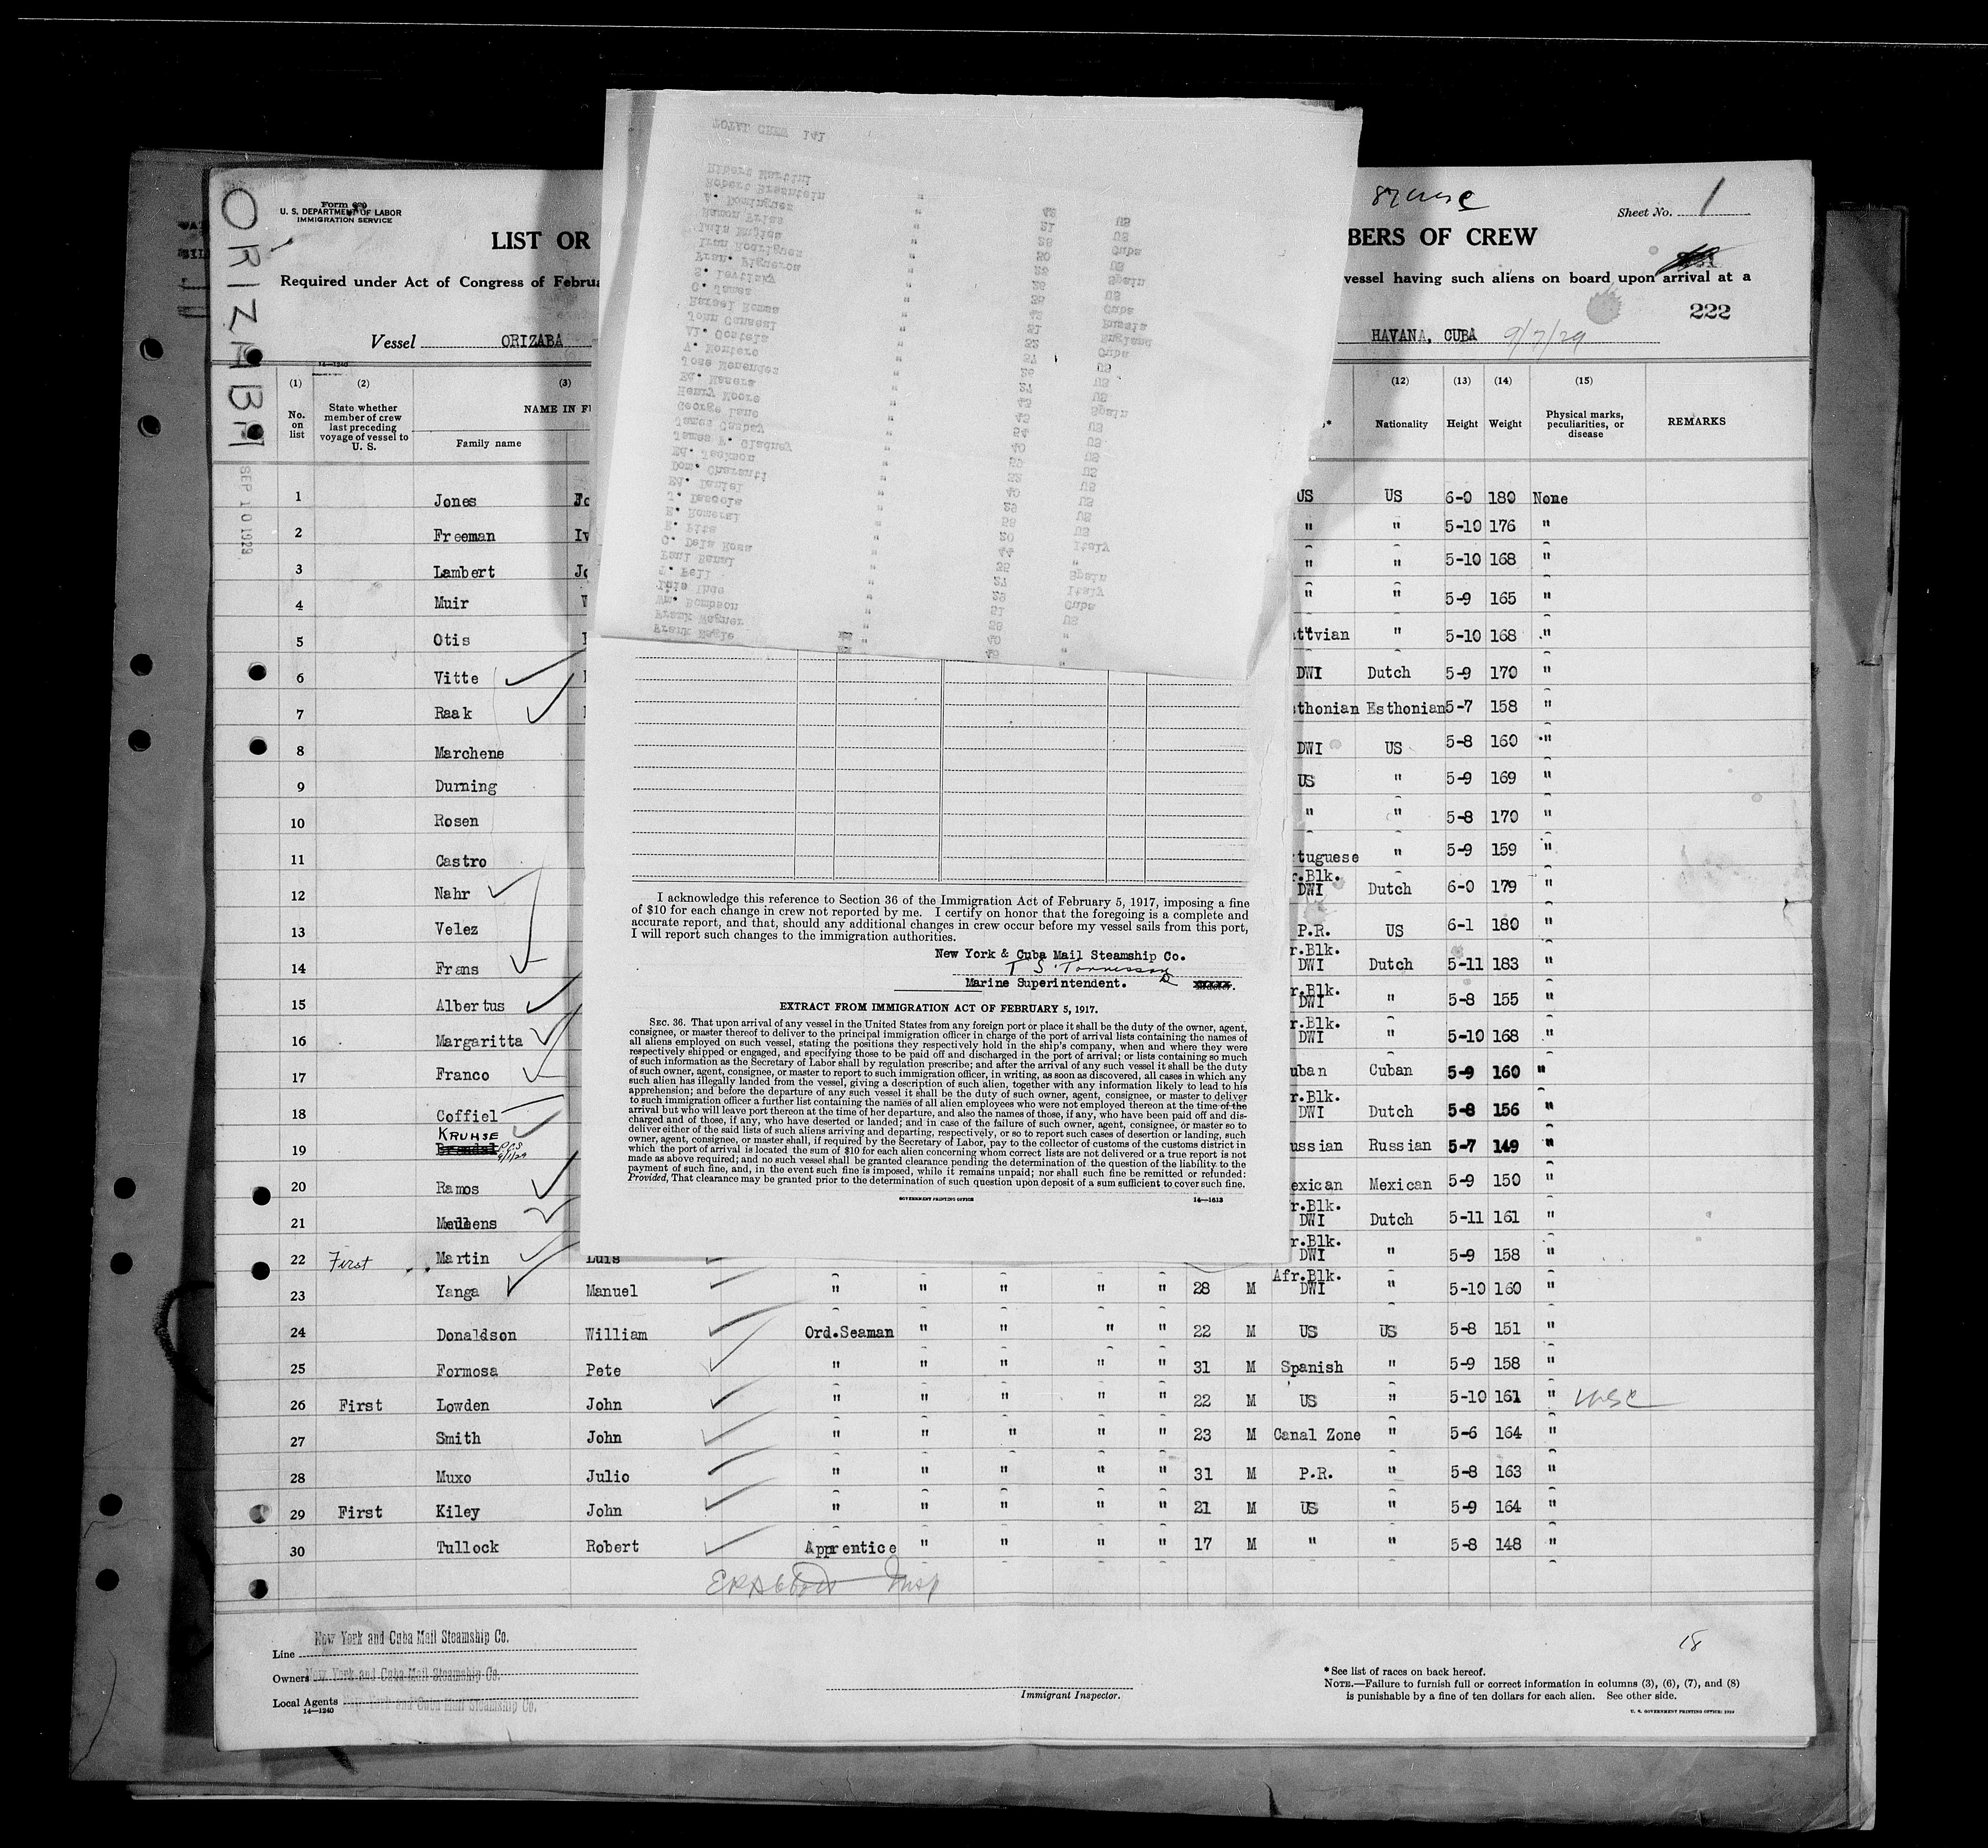 ORIZABA
SEP 10 1929
Form 680
U. S. DEPARTMENT OF LABOR
IMMIGRATION SERVICE
Sheet No. 1
LIST OR
BERS OF CREW
Required under Act of Congress of Februa
vessel having such aliens on board upon arrival at a
222
Vessel ORIZABA
HAVANA, CUBA 9/7/29
14—1240
(1) (2) (3) (12) (13) (14) (15)
No. on list
State whether member of crew last preceding voyage of vessel to U. S.
NAME IN F
Family name
Nationality Height Weight
Physical marks, peculiarities, or disease
REMARKS
1 Jones US US 6-0 180 None
2 Freeman Iv " " 5-10 176 "
3 Lambert Jo " " 5-10 168 "
4 Muir " " 5-9 165 "
5 Otis tvian " 5-10 168 "
6 Vitte DWI Dutch 5-9 170 "
7 Raak thonian Esthonian 5-7 158 "
8 Marchene DWI US 5-8 160 "
9 Durning US " 5-9 169 "
10 Rosen " " 5-8 170 "
11 Castro tuguese " 5-9 159 "
12 Nahr r.Blk. DWI Dutch 6-0 179 "
13 Velez P.R. US 6-1 180 "
14 Frans r.Blk. DWI Dutch 5-11 183 "
15 Albertus r.Blk. DWI " 5-8 155 "
16 Margaritta r.Blk. DWI " 5-10 168 "
17 Franco uban Cuban 5-9 160 "
18 Coffiel r.Blk. DWI Dutch 5-8 156 "
19 KRUHSE ussian Russian 5-7 149 "
20 Ramos exican Mexican 5-9 150 "
21 r.Blk. DWI Dutch 5-11 161 "
22 First Martin Luis r.Blk. DWI " 5-9 158 "
23 Yanga Manuel " " " " " 28 M Afr.Blk. DWI " 5-10 160 "
24 Donaldson William Ord.Seaman " " " " 22 M US US 5-8 151 "
25 Formosa Pete " " " " " 31 M Spanish " 5-9 158 "
26 First Lowden John " " " " " 22 M US " 5-10 161 "
27 Smith John " " " " " 23 M Canal Zone " 5-6 164 "
28 Muxo Julio " " " " " 31 M P.R. " 5-8 163 "
29 First Kiley John " " " " " 21 M US " 5-9 164 "
30 Tullock Robert Apprentice " " " " 17 M " " 5-8 148 "
Insp
Line New York and Cuba Mail Steamship Co.
Owners New York and Cuba Mail Steamship Co.
Local Agents York and Cuba Mail Steamship Co.
14—1240
Immigrant Inspector.
18
*See list of races on back hereof.
NOTE.—Failure to furnish full or correct information in columns (3), (6), (7), and (8)
is punishable by a fine of ten dollars for each alien. See other side.
U. S. GOVERNMENT PRINTING OFFICE: 1929
TOTAL CREW 141
Albert Martini
Robert Braentein
A. Dominguez
Ramon Frias
Luis Mugica
Ivan Rodriguez
Fran. Figueroa
S. Levitsky
C. James
Rafael Ramus
John Canossi
Al. Costela
V. Montero
Jose Menendez
Ed. Manera
Henry Moore
George Lane
James Caspey
James F. Gladney
Ed. Jackson
Dom. Charanti
Ed. Daniel
J. Dascola
E. Romeral
E. Fita
C. Dela Rosa
Emil Banal
J. Fell
Luis Inde
Wm. Bompson
Frank Wagner
Frank Nagle
I acknowledge this reference to Section 36 of the Immigration Act of February 5, 1917, imposing a fine
of $10 for each change in crew not reported by me. I certify on honor that the foregoing is a complete and
accurate report, and that, should any additional changes in crew occur before my vessel sails from this port,
I will report such changes to the immigration authorities.
New York & Cuba Mail Steamship Co.
Marine Superintendent.
EXTRACT FROM IMMIGRATION ACT OF FEBRUARY 5, 1917.
SEC. 36. That upon arrival of any vessel in the United States from any foreign port or place it shall be the duty of the owner, agent,
consignee, or master thereof to deliver to the principal immigration officer in charge of the port of arrival lists containing the names of
all aliens employed on such vessel, stating the positions they respectively hold in the ship's company, when and where they were
respectively shipped or engaged, and specifying those to be paid off and discharged in the port of arrival; or lists containing so much
of such information as the Secretary of Labor shall by regulation prescribe; and after the arrival of any such vessel it shall be the duty
of such owner, agent, consignee, or master to report to such immigration officer, in writing, as soon as discovered, all cases in which any
such alien has illegally landed from the vessel, giving a description of such alien, together with any information likely to lead to his
apprehension; and before the departure of any such vessel it shall be the duty of such owner, agent, consignee, or master to deliver
to such immigration officer a further list containing the names of all alien employees who were not employed thereon at the time of the
arrival but who will leave port thereon at the time of her departure, and also the names of those, if any, who have been paid off and dis-
charged and of those, if any, who have deserted or landed; and in case of the failure of such owner, agent, consignee, or master so to
deliver either of the said lists of such aliens arriving and departing, respectively, or so to report such cases of desertion or landing, such
owner, agent, consignee, or master shall, if required by the Secretary of Labor, pay to the collector of customs of the customs district in
which the port of arrival is located the sum of $10 for each alien concerning whom correct lists are not delivered or a true report is not
made as above required; and no such vessel shall be granted clearance pending the determination of the question of the liability to the
payment of such fine, and, in the event such fine is imposed, while it remains unpaid; nor shall such fine be remitted or refunded:
Provided, That clearance may be granted prior to the determination of such question upon deposit of a sum sufficient to cover such fine.
GOVERNMENT PRINTING OFFICE
14—1613